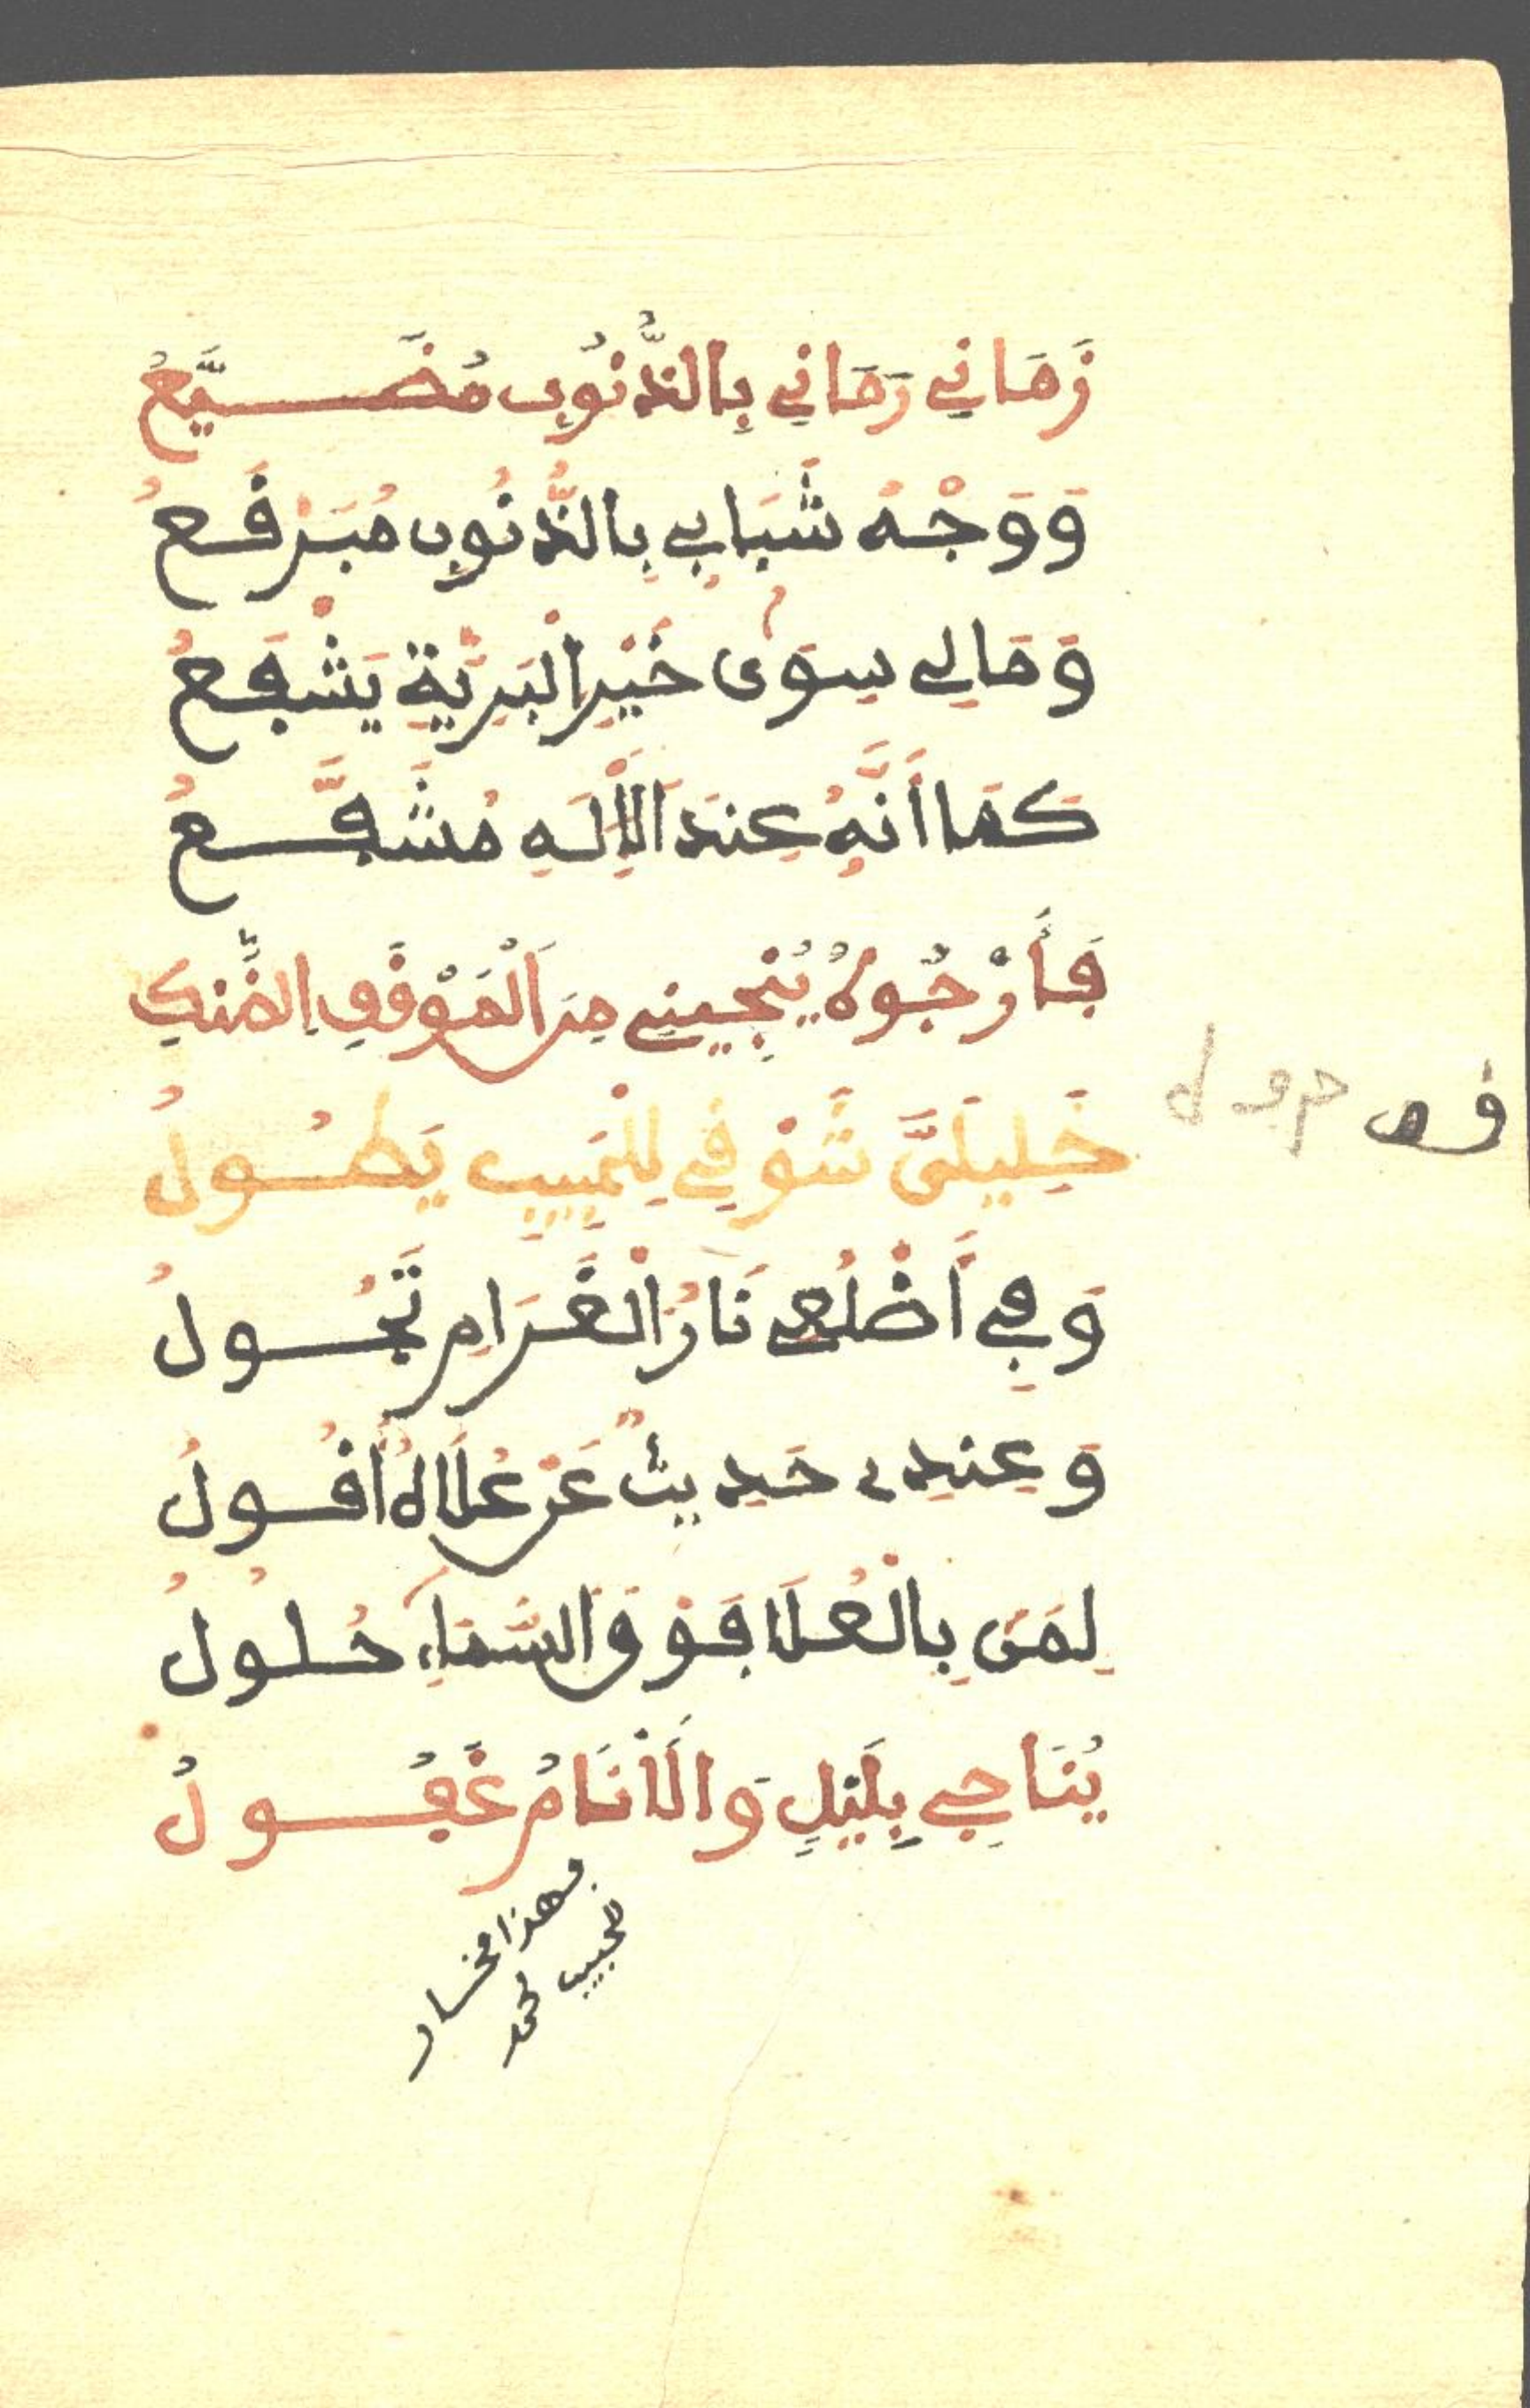 زَمَانِي رَمَانِي بِالذُّنُوبِ مُضَيَّعُ
وَوَجْهُ شَبَابِي بِالذُّنُوبِ مُبَرْقَعُ
وَمَالِي سِوَى خَيْرِ الْبَرِيَّةِ يَشْفَعُ
كَمَا أَنَّهُ عِنْدَ الْإِلَهِ مُشَفَّعُ
فَأَرْجُوهُ يُنْجِينِي مِنَ الْمَوْقِفِ الضَّنْكِ
خَلِيلَيَّ شَوْقِي لِلْحَبِيبِ يَطُولُ
وَفِي أَضْلُعِي نَارُ الْغَرَامِ تَجُولُ
وَعِنْدِي حَدِيثٌ عَنْ عُلَاهُ أَقُولُ
لِمَنْ بِالْعُلَا فَوْقَ السَّمَاءِ حُلُولُ
يُنَاجِي بِلَيْلٍ وَالْأَنَامُ غَفُولُ
للحبيب محمد